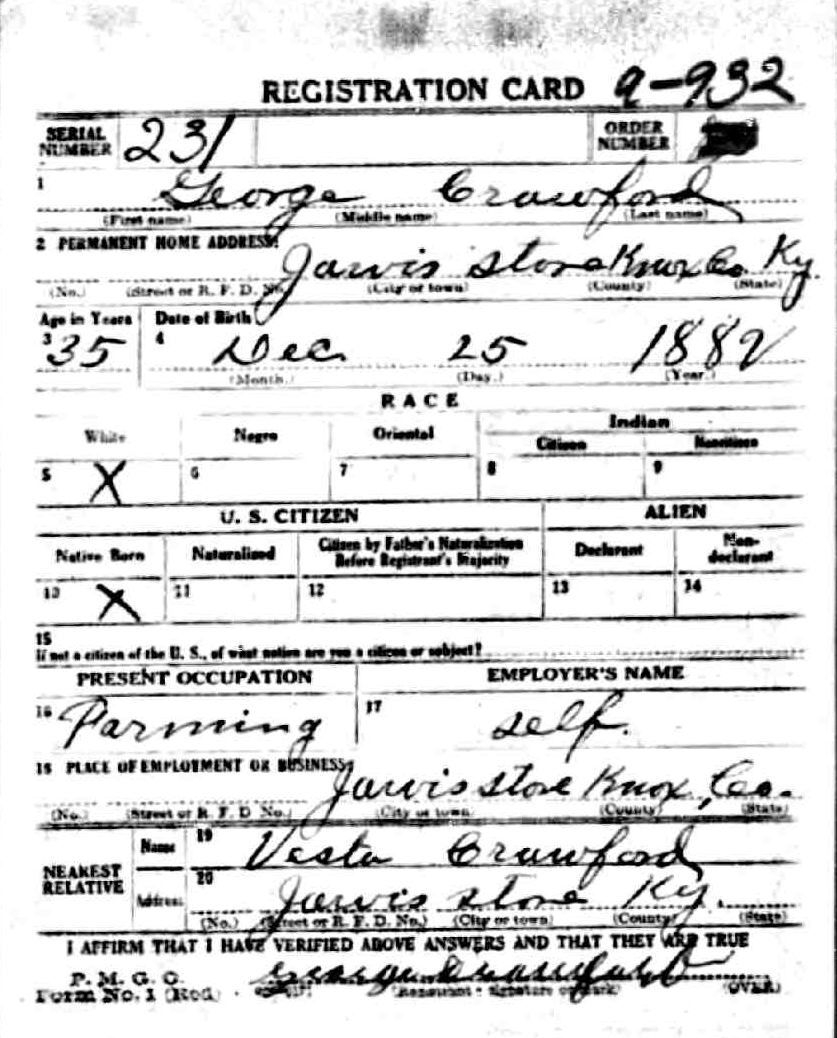 REGISTRATION CARD 9-932
SERIAL NUMBER 231 ORDER NUMBER
1 George Crawford
(First name) (Middle name) (Last name)
2 PERMANENT HOME ADDRESS:
Jarvis Store Knox Co. Ky
(No.) (Street or R. F. D. No.) (City or town) (County) (State)
Age in Years Date of Birth
3 35 4 Dec 25 1882
(Month.) (Day.) (Year.)
RACE
White Negro Oriental Indian
Citizen Noncitizen
5 X 6 7 8 9
U. S. CITIZEN ALIEN
Native Born Naturalized Citizen by Father's Naturalization Before Registrant's Majority Declarant Non-declarant
10 X 11 12 13 14
15
If not a citizen of the U. S., of what nation are you a citizen or subject?
PRESENT OCCUPATION EMPLOYER'S NAME
16 Farming 17 self.
18 PLACE OF EMPLOYMENT OR BUSINESS:
Jarvis Store Knox, Co.
(No.) (Street or R. F. D. No.) (City or town) (County) (State)
NEAREST RELATIVE
Name 19 Vesta Crawford
Address 20 Jarvis Store Ky.
(No.) (Street or R. F. D. No.) (City or town) (County) (State)
I AFFIRM THAT I HAVE VERIFIED ABOVE ANSWERS AND THAT THEY ARE TRUE
P. M. G. O.
Form No. 1 (Red) George Crawford
(Registrant's signature or mark) (OVER)